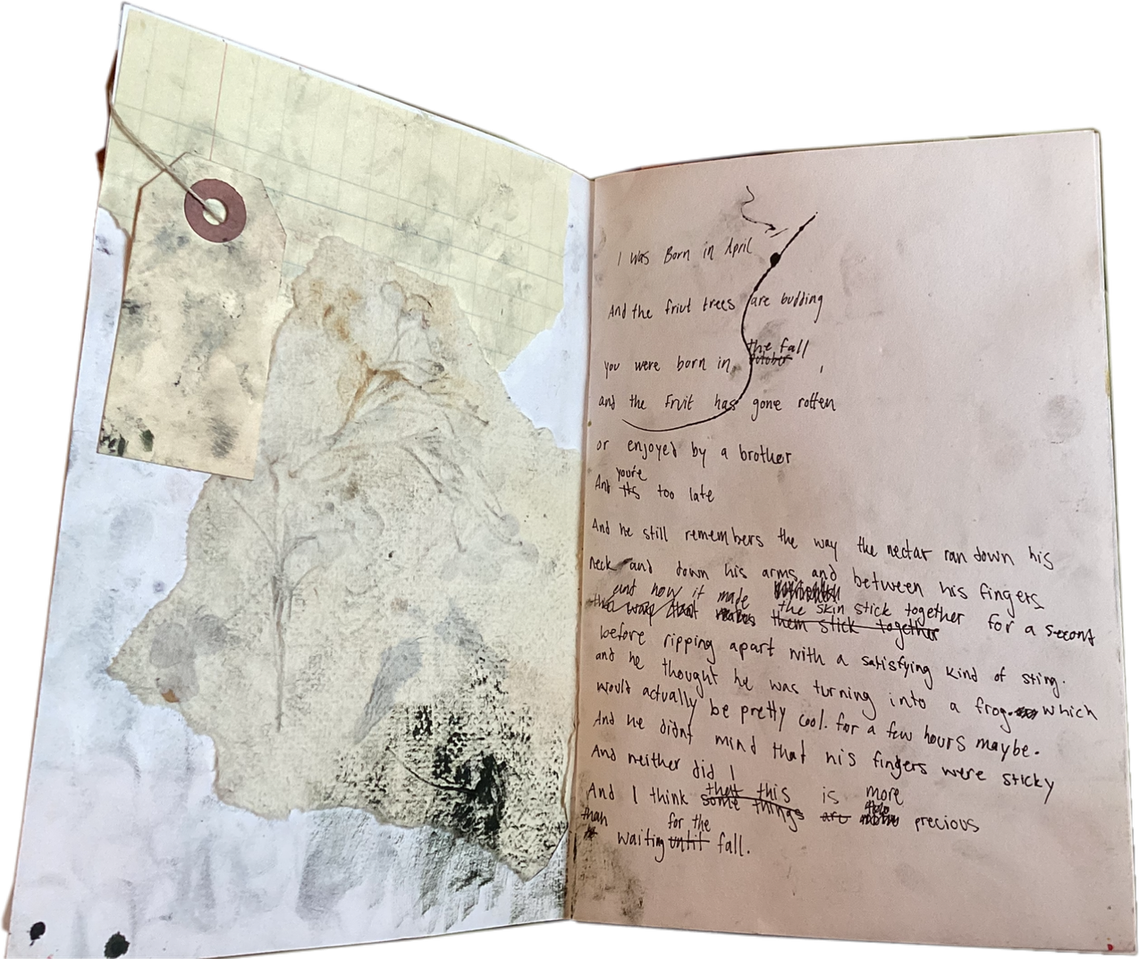 I was Born in April
And the friut trees are budding
you were born in the fall,
and the Fruit has gone rotten
or enjoyed by a brother
And you're too late
And he still remembers the way the nectar ran down his
neck and down his arms and between his fingers
and how it made the skin stick together for a second
before ripping apart with a satisfying kind of sting.
and he thought he was turning into a frog which
would actually be pretty cool. for a few hours maybe.
And he didnt mind that his fingers were sticky
And neither did I
And I think that this is more precious
than waiting for the fall.